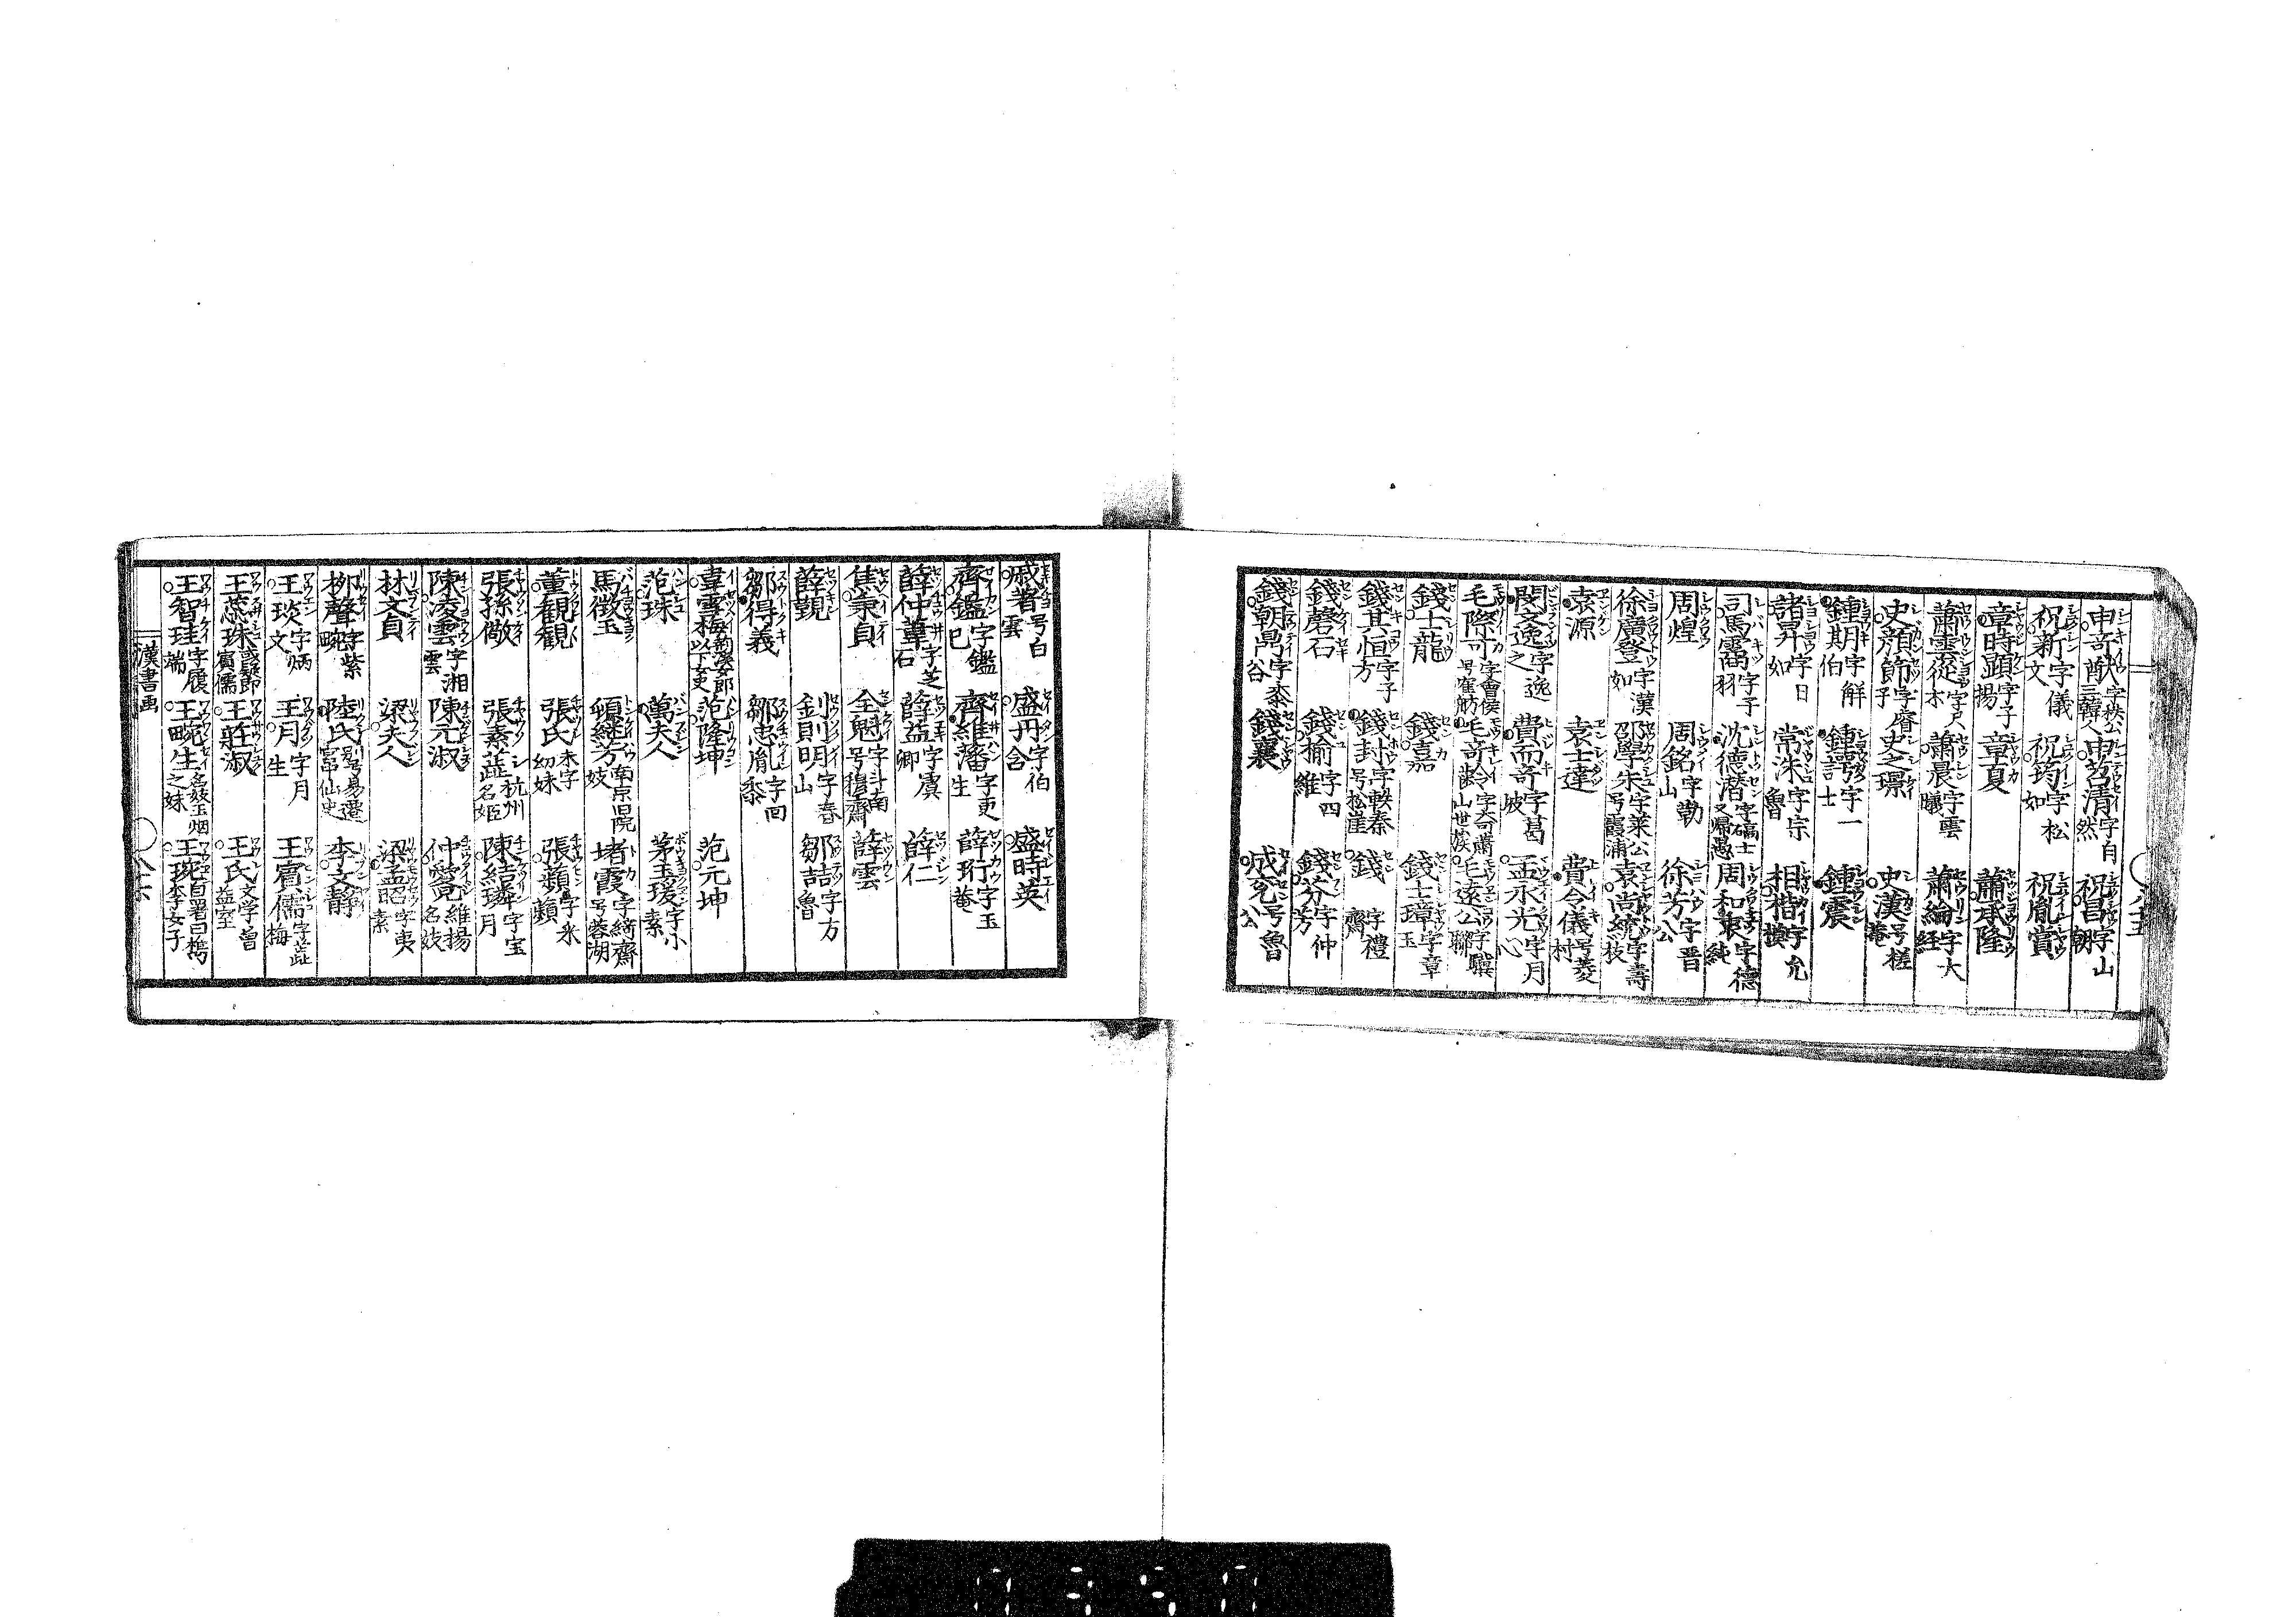 申奇猷字秩公三韓人 申苕清字自然 祝昌字山朝
祝新字儀文 祝筠字松如 祝胤賞
章時顕字子揚 章夏 蕭承隆
蕭雲從字尺木 蕭晨字雲曦 蕭綸字大経
史顔節字睿子 史之璟 史漢号槎菴
鍾期字解伯 鍾諤字一士 鍾震
諸昇字日如 常洙字宗魯 相楷字允摸
司馬霱字子羽 沈德潜字碻士又帰愚 周和衷字德純
周煌 周銘字勒山 徐芳字晋公
徐廣登字漢如 邵學朱字萊公号霞浦 袁尚統字壽枝
袁源 袁士達 費令儀号菱村
閔文逸字逸之 費而奇字葛坡 孟永光字月心
毛際可字會侯 毛奇齢 毛遠公字驥聯
錢士龍 錢嘉 錢士璋字章玉
錢其恒字子方 錢封字軼秦号松崖 錢 字禮齋
錢磬石 錢榆字四維 錢芬字仲芳
錢朝鼎字黍谷 錢襄 成兗号魯公
八十五
戚著号白雲 盛丹字伯含 盛時英
齊鑑字鑑巳 齊維藩字更生 薛珩字玉菴
薛仲葦字芝石 薛益字虞卿 薛仁
焦秉貞 全魁字斗南号穆齋 薛雲
薛覲 剣明字春山 鄒喆字方魯
鄒得義 鄒忠胤字回黍
韋雪梅以下女史 范隆坤 范元坤
范珠 萬夫人 茅玉瑗字小素
馬徴玉 頓継芳南京旧院妓 堵霞字綺齋号蓉湖
董観観 張氏本字幻妹 張蘋字氷蘋
張孫儆 張素蕋杭州名姫 陳結璘字宝月
陳凌雲字湘雲 陳元淑 仲愛児維揚名妓
林文貞 梁夫人 梁孟昭字夷素
栁聲字紫畹 陸氏別号易遷富中仙史 李文静
王琰字炳文 王月字月生 王賓儒字蕋梅
王蕊珠賓儒 王莊淑 王氏文学曽益室
王智珪字履端 王畹生名妓玉烟之妹 王琬
漢書画 八十六